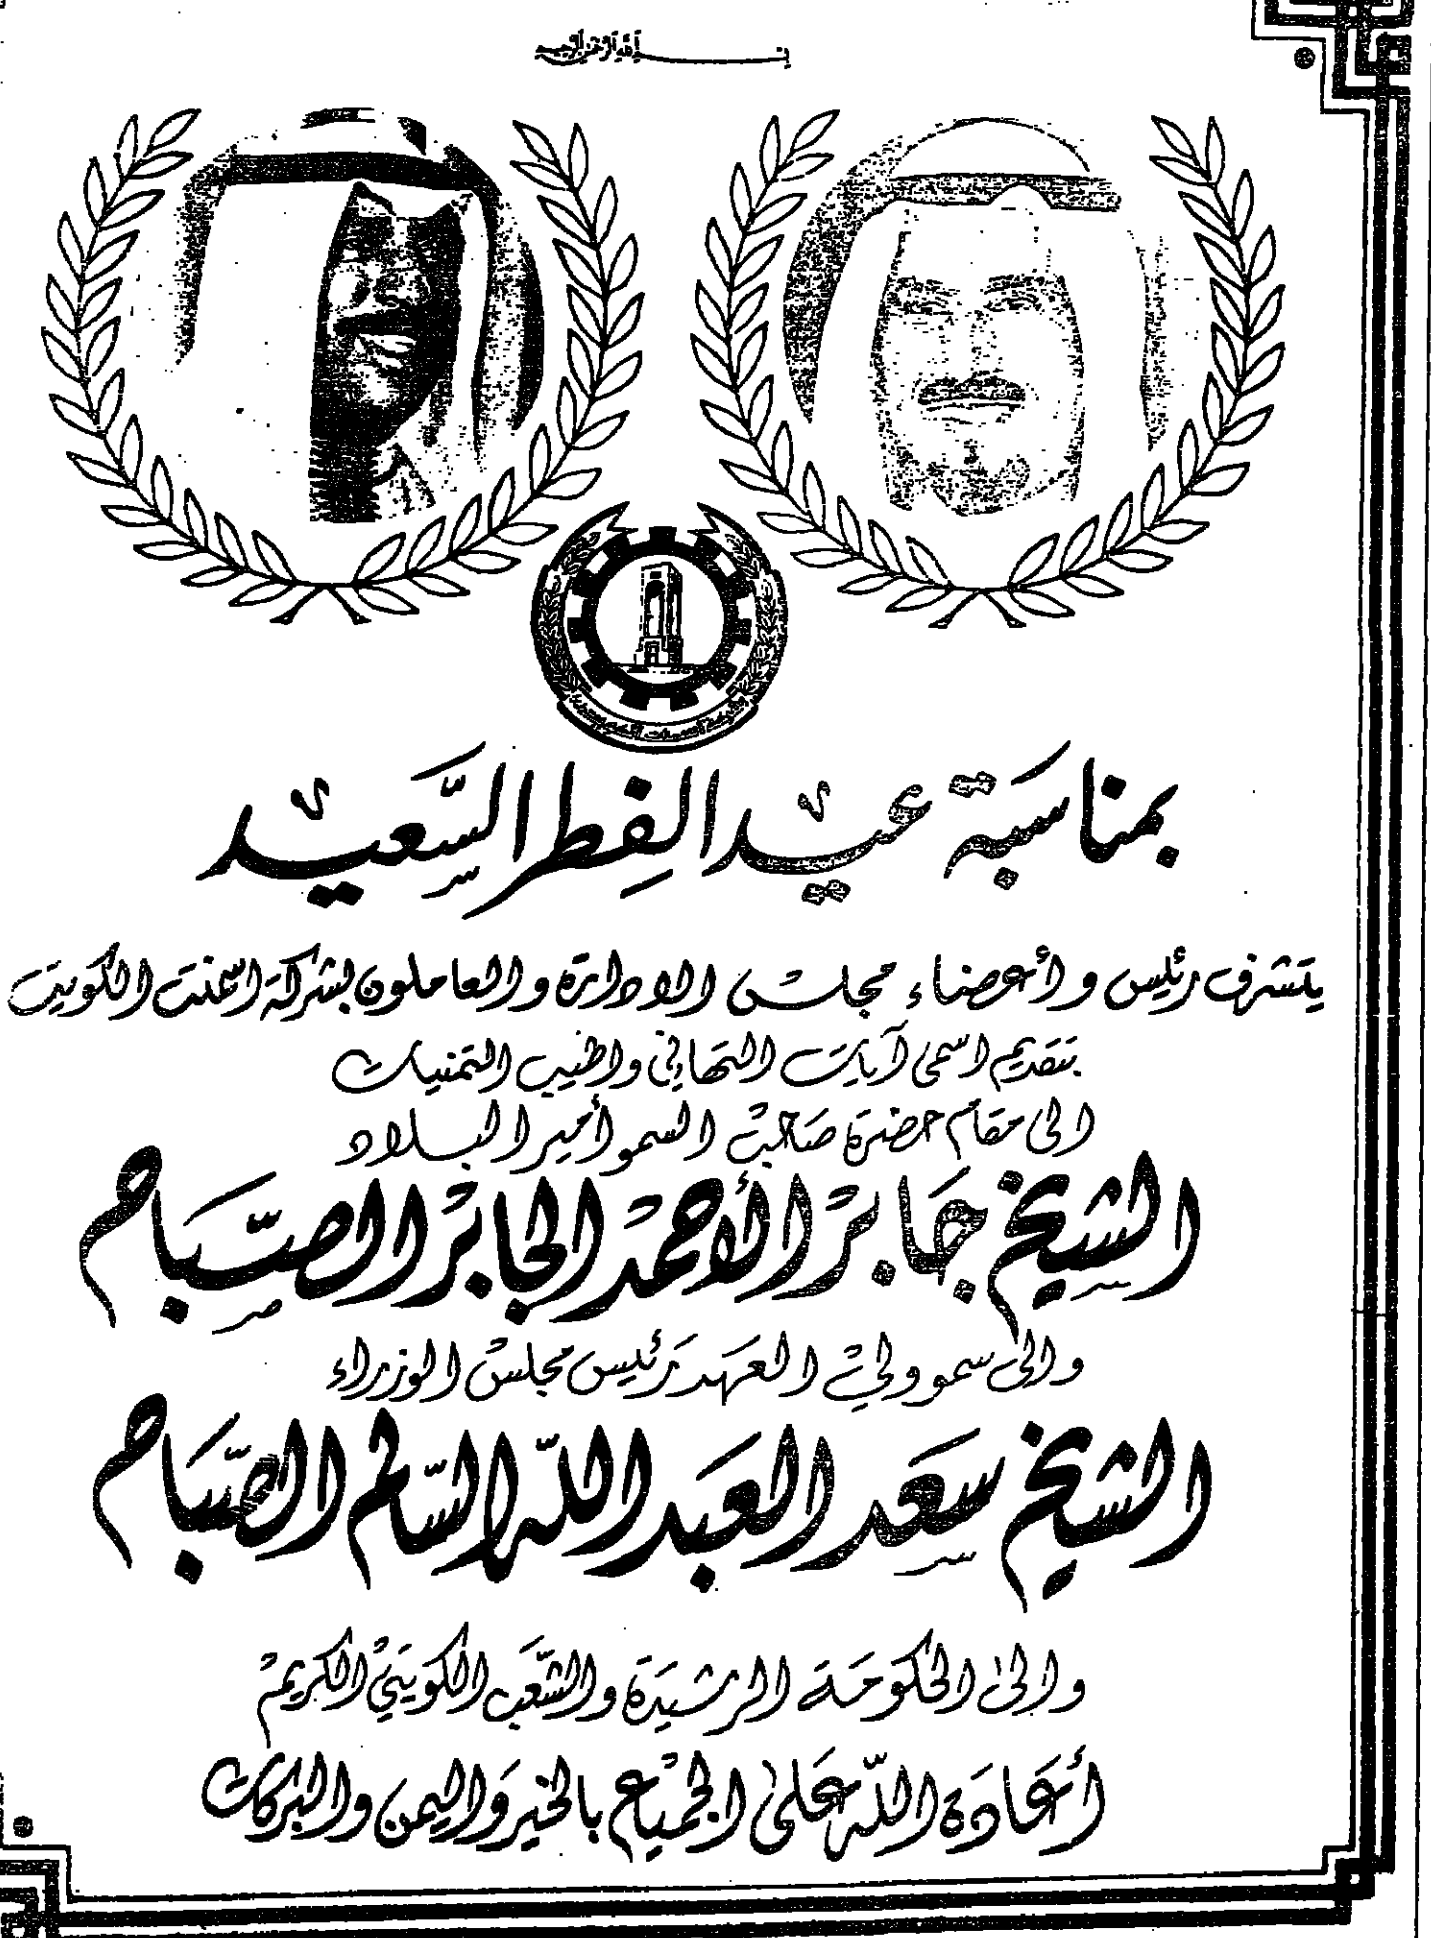 بسم الله الرحمن الرحيم
شركة أسمنت الكويت
بمناسبة عيد الفطر السَّعيد
يتشرف رئيس وأعضاء مجلس الادارة والعاملون بشركة اسمنت الكويت
بتقديم اسمى آيات التهاني واطيب التمنيات
الى مقام حضرة صاحب السمو أمير البلاد
الشيخ جَابر الأحمد الجابر الصبَّاح
والى سمو ولي العَهد رَئيس مجلس الوزراء
الشيخ سَعد العَبد اللّه السَّالم الصبَّاح
والى الحكومَة الرشيدَة والشَّعب الكويتي الكريم
أعَادَة اللّه عَلى الجميع بالخير وَاليمن والبركات